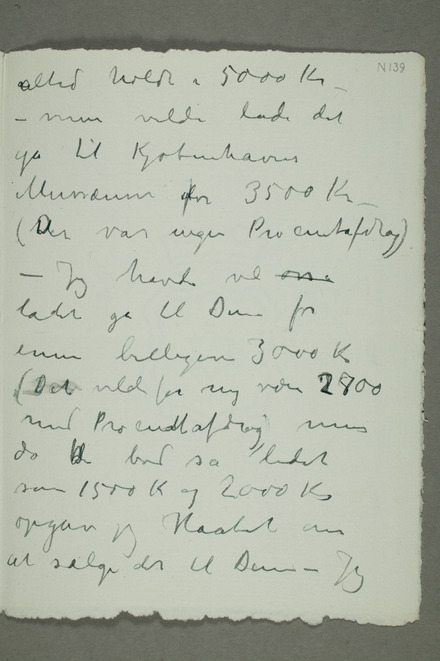 N139
altid holdt i 5000 Kr –
– men vilde lade det
gå til Kjøbenhavns
Musæum for 3500 Kr –
(Der var ingen Procentafdrag)
– Jeg havde vel
ladet gå til Dem for
ennu billigere 3000 K
(Det vilde for mig være 2700
med Procentafdrag) men
da De bød så lidet
som 1500 K og 2000 Kr
opgav jeg Haabet om
at sælge det til Dem – Jeg